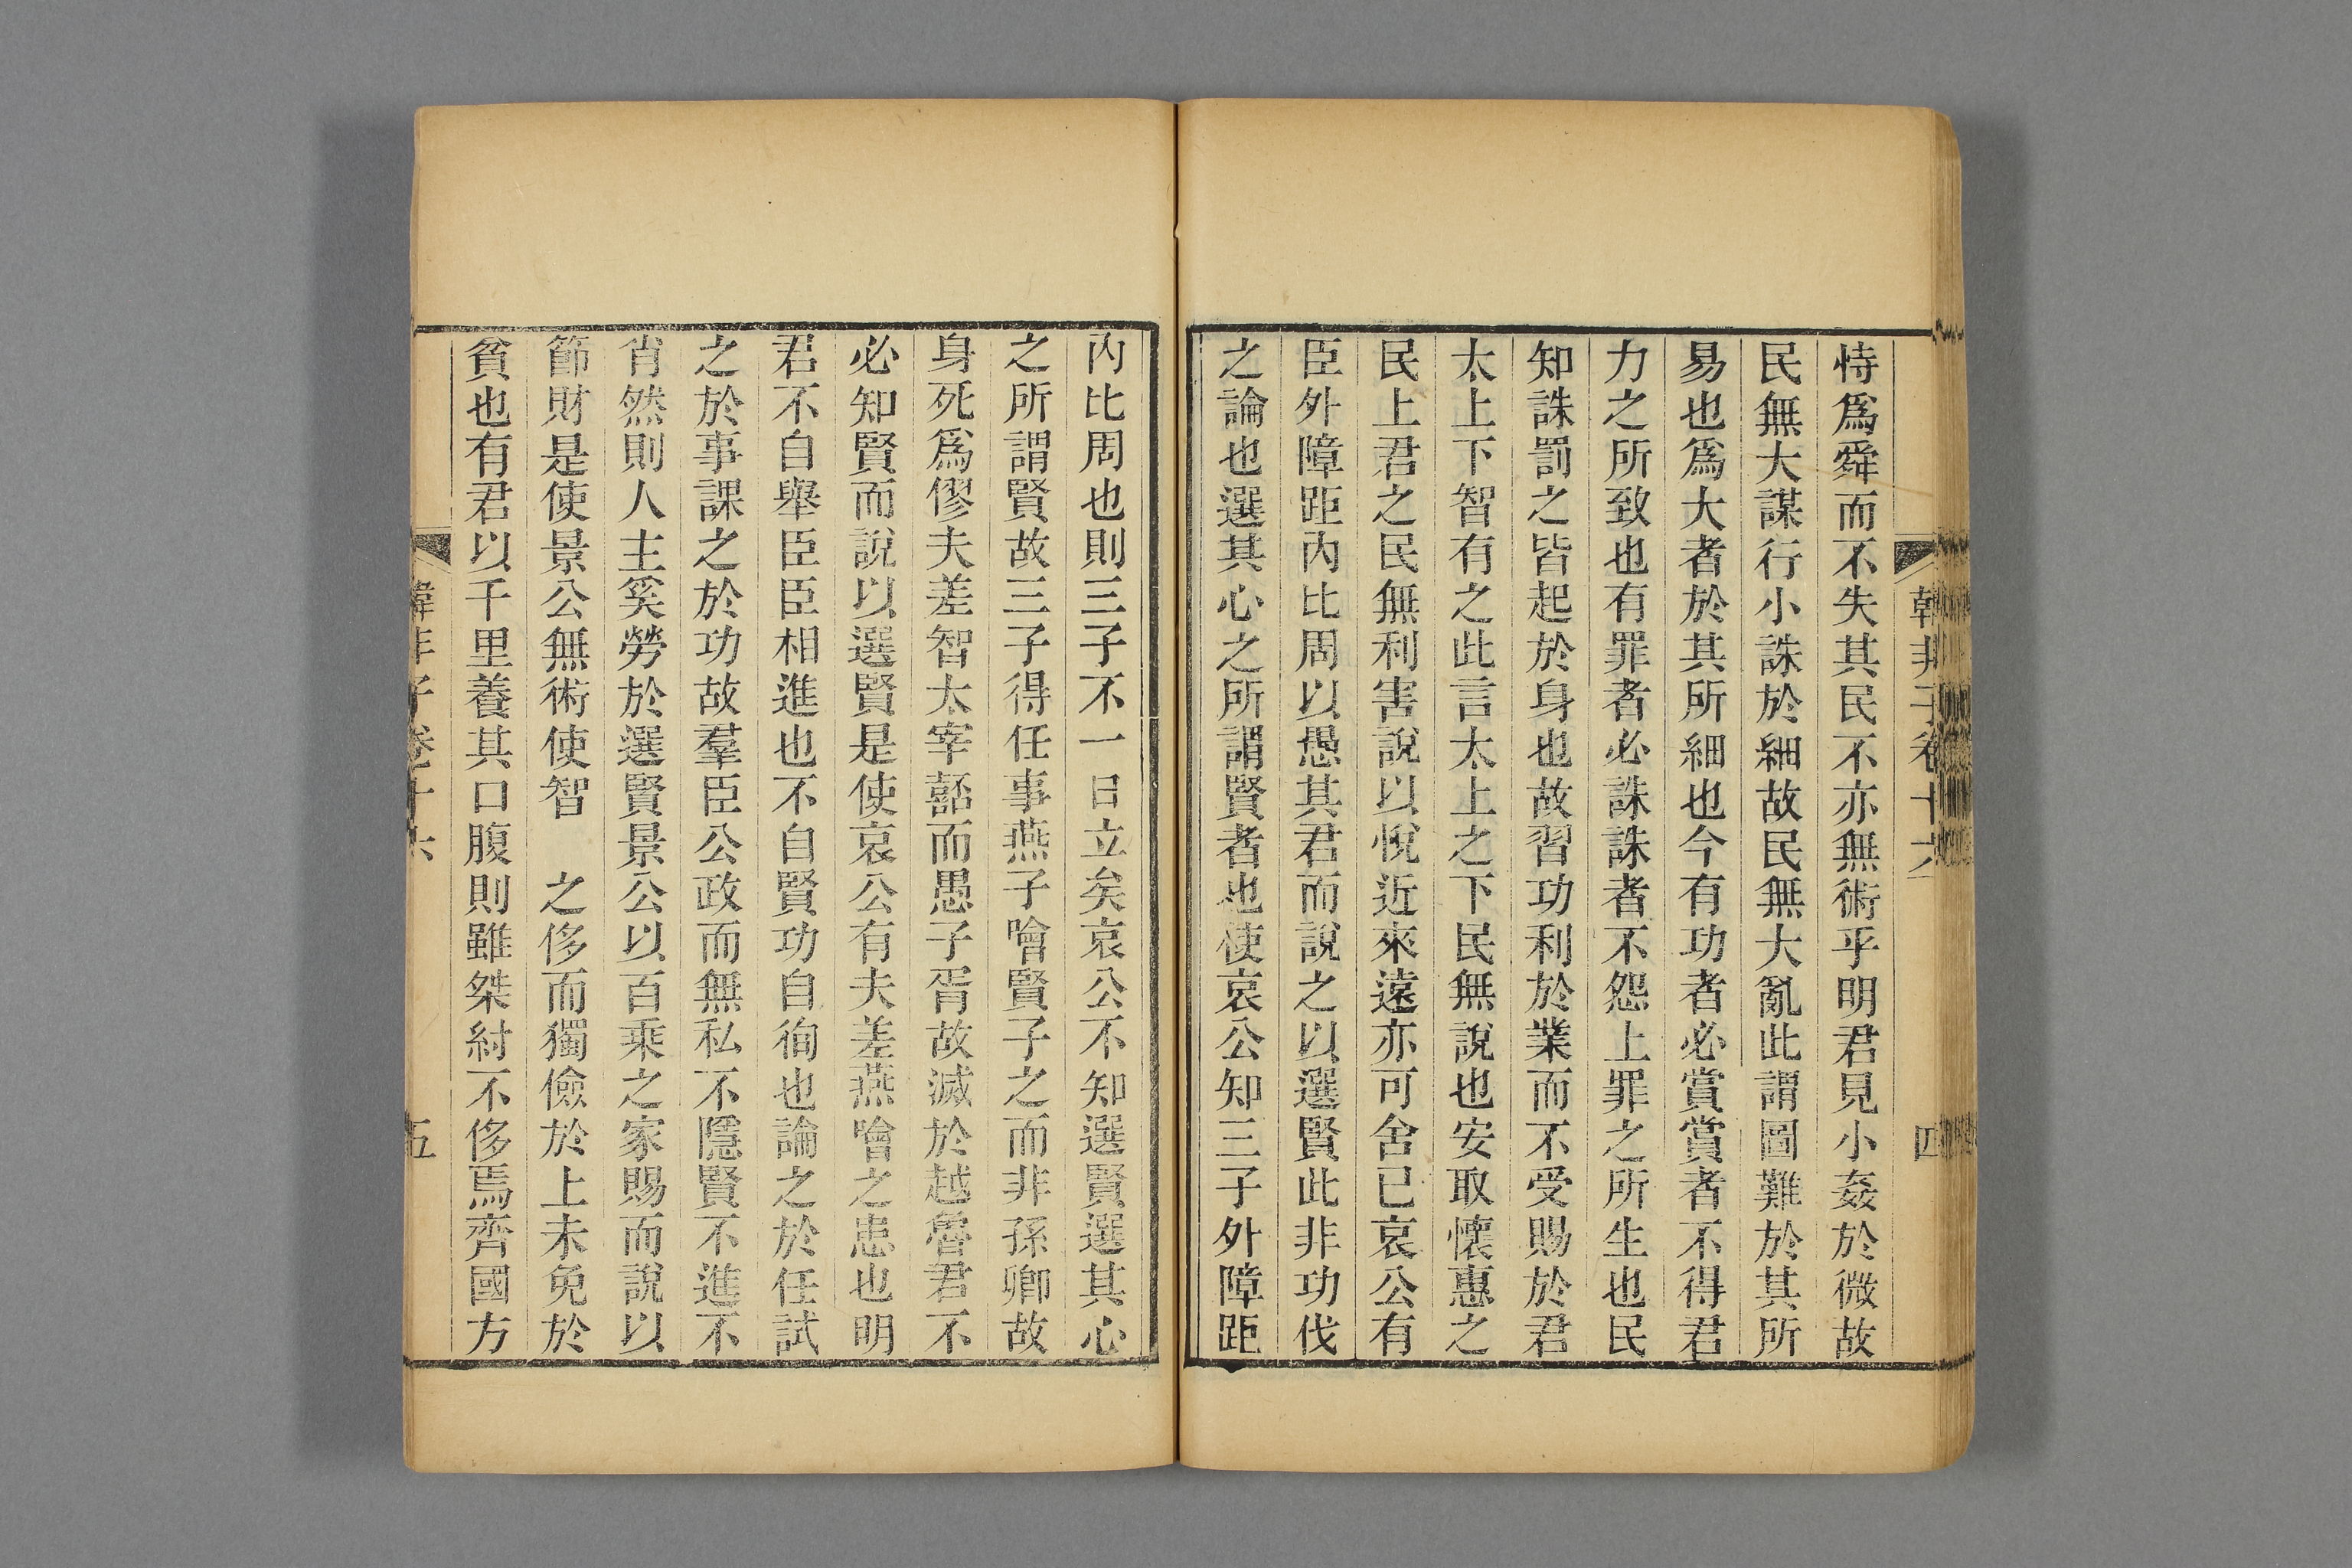 韓非子卷十六
四
恃爲舜而不失其民不亦無術乎明君見小姦於微故
民無大謀行小誅於細故民無大亂此謂圖難於其所
易也爲大者於其所細也今有功者必賞賞者不得君
力之所致也有罪者必誅誅者不怨上罪之所生也民
知誅罰之皆起於身也故習功利於業而不受賜於君
太上下智有之此言太上之下民無說也安取懷惠之
民上君之民無利害說以悅近來遠亦可舍已哀公有
臣外障距內比周以愚其君而說之以選賢此非功伐
之論也選其心之所謂賢者也使哀公知三子外障距
內比周也則三子不一日立矣哀公不知選賢選其心
之所謂賢故三子得任事燕子噲賢子之而非孫卿故
身死爲僇夫差智太宰嚭而愚子胥故滅於越魯君不
必知賢而說以選賢是使哀公有夫差燕噲之患也明
君不自舉臣臣相進也不自賢功自徇也論之於任試
之於事課之於功故羣臣公政而無私不隱賢不進不
肖然則人主奚勞於選賢景公以百乘之家賜而說以
節財是使景公無術使智　之侈而獨儉於上未免於
貧也有君以千里養其口腹則雖桀紂不侈焉齊國方
韓非子卷十六
五